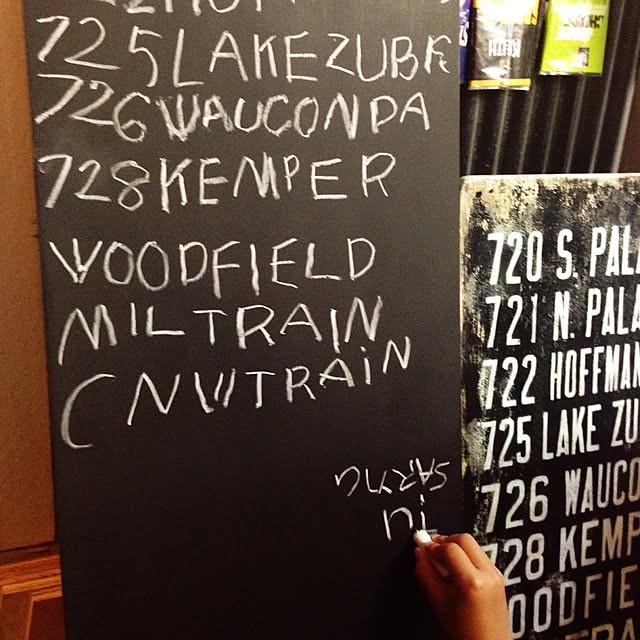 725 LAKE ZUBR
726 WAUCONDA
728 KEMPER
WOODFIELD
MIL TRAIN
CNW TRAIN
720 S. PALA
721 N. PALA
722 HOFFMAN
725 LAKE ZU
726 WAUCO
728 KEMP
OODFIE